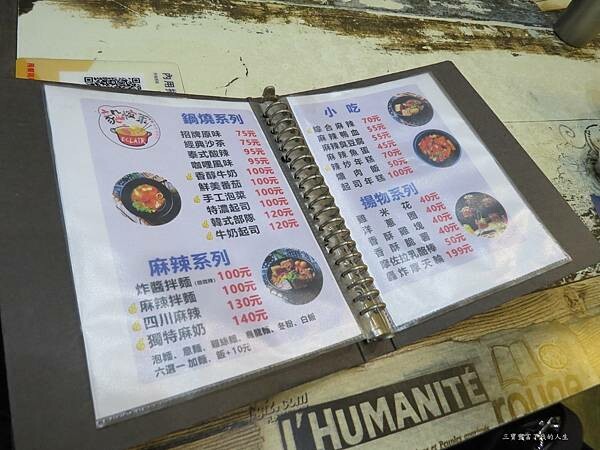 鍋燒系列
招牌原味 75元
經典沙茶 75元
泰式酸辣 95元
咖哩風味 95元
香醇牛奶 100元
鮮美番茄 100元
手工泡菜 100元
特濃起司 100元
韓式部隊 120元
牛奶起司 120元
ECLAIR
麻辣系列
炸醬拌麵 100元
麻辣拌麵 100元
四川麻辣 130元
獨特麻奶 140元
泡麵、意麵、雞絲麵、烏龍麵、冬粉、白飯
六選一 加麵、飯+10元
小吃
綜合麻辣 70元
麻辣鴨血 55元
麻辣臭豆腐 55元
麻辣魚蛋 45元
辣炒年糕 70元
爌肉飯 50元
起司年糕 100元
揚物系列
雞米花 40元
洋蔥圈 40元
香酥雞塊 40元
香酥脆薯 40元
摩佐拉乳酪棒 50元
轟炸摩天輪 199元
內用
L'HUMANITÉ
rouge
三寶爸富了我的人生